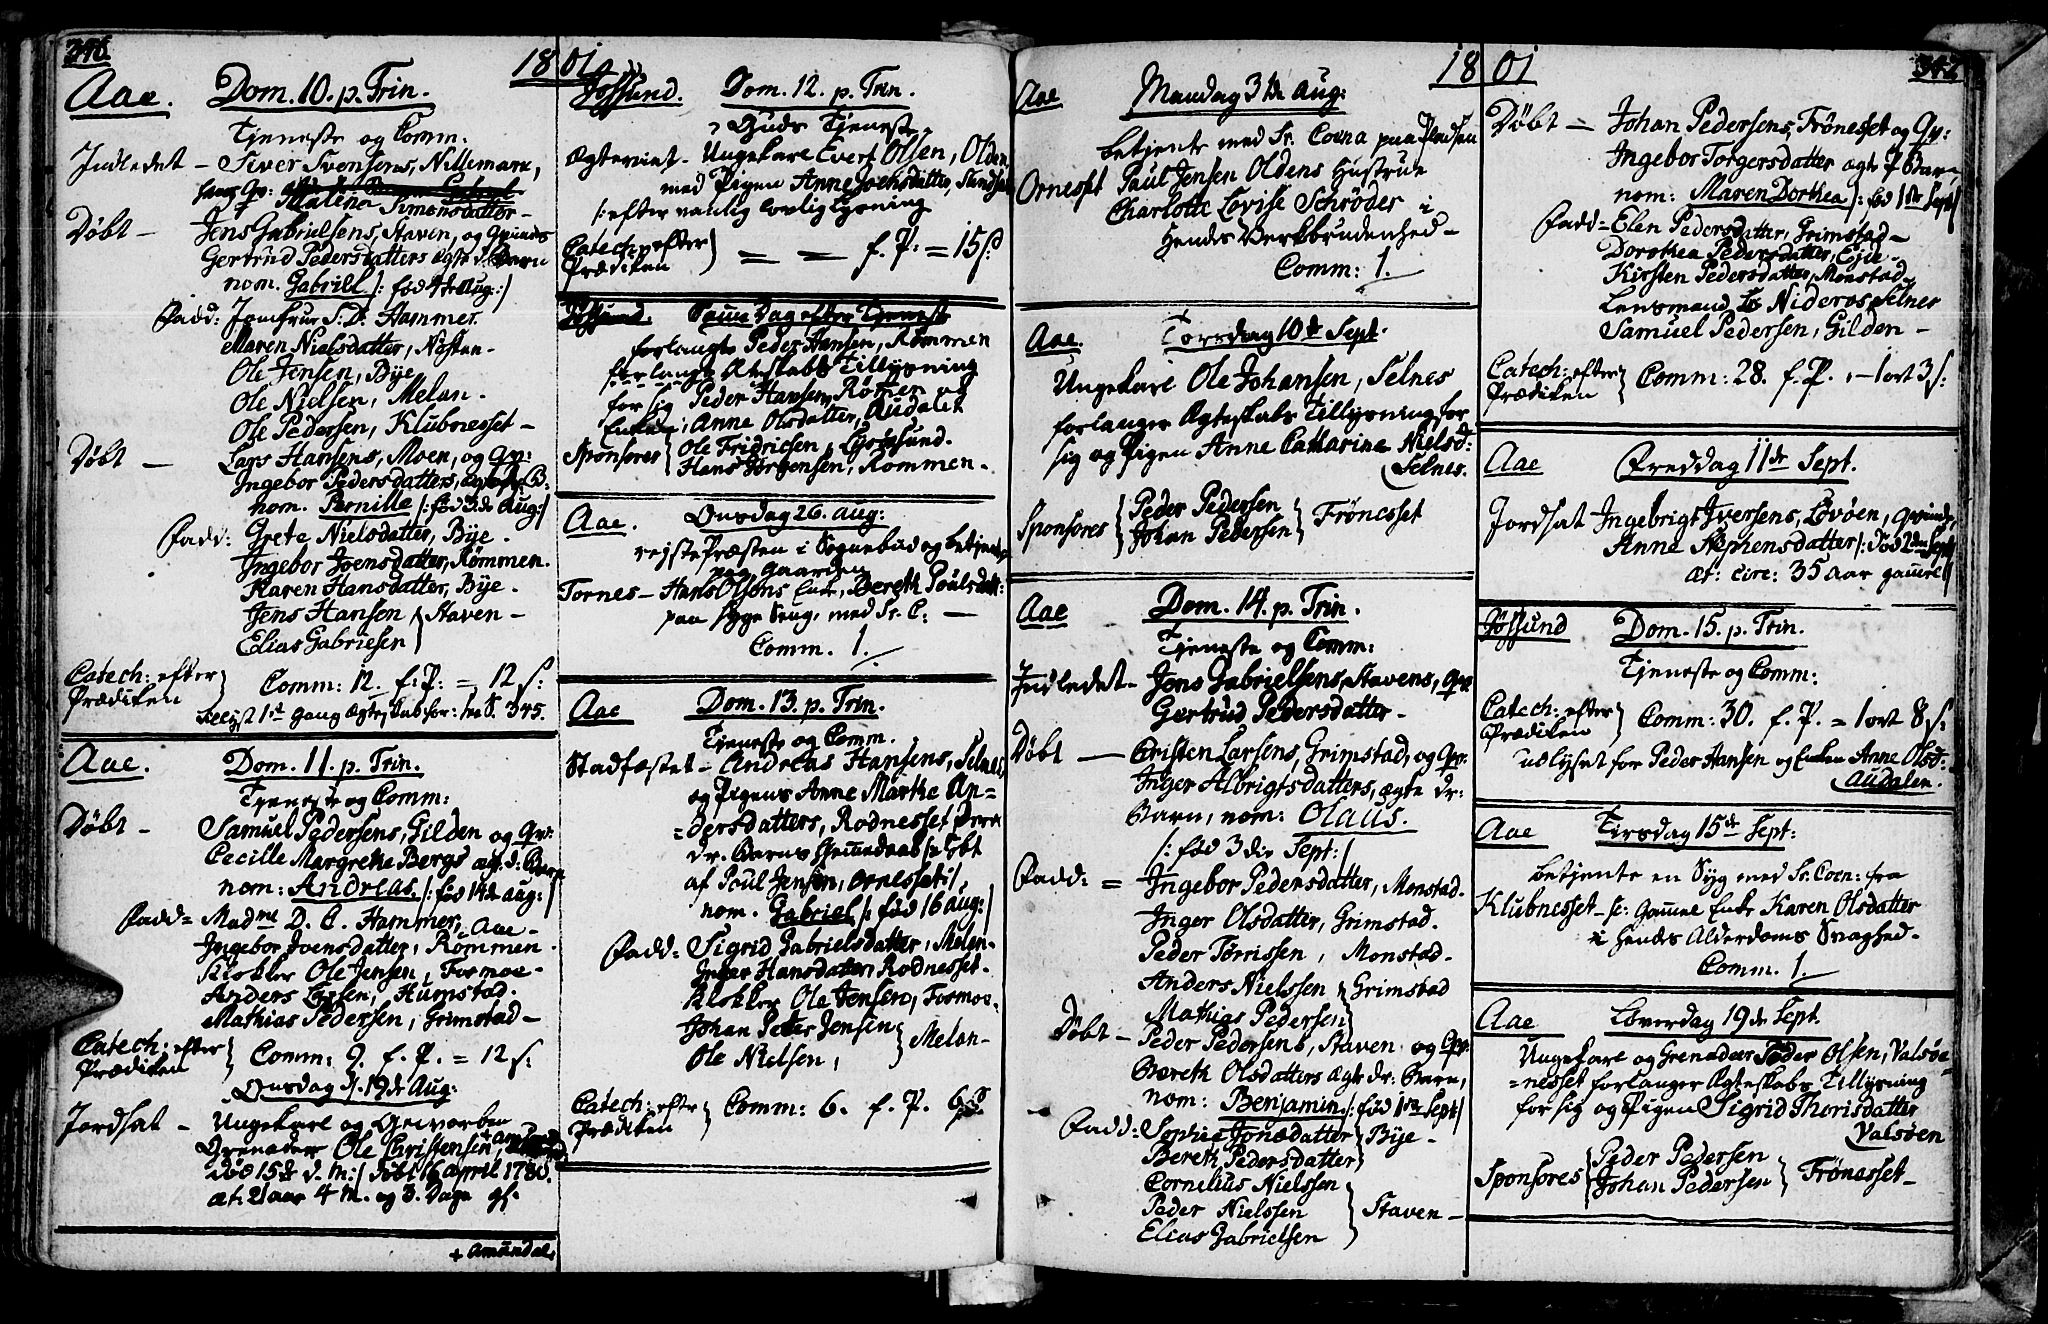 346.
18 01.
Aae. Dom. 10. p. Trin.
Tjeneste og Comm.
Indledet – Siver Svensens, Nillemark,
hans Qv: Malena Simonsdatter –
Døbt – Jens Gabrielsens, Staven, og Qvinde
Gertrud Pedersdatters ægte d. Barn
nom. Gabriel /: fød 4de Aug: :/
Fadd: Jomfrue S. D. Hammer.
Maren Nielsdatter, Nesten –
Ole Jensen, Bye
Ole Nielsen, Melan.
Ole Pedersen, Klubnesset –
Døbt – Lars Hansens, Moen, og Qv:
Ingebor Pedersdatters, ægte B:
nom. Pernille /: fød 3de Aug :/
Fadd: Grete Nielsdatter, Bye.
Ingebor Joensdatter, Römmen.
Karen Hansdatter, Bye.
Jens Hansen } Staven –
Elias Gabrielsen
Catech: efter
Prædiken } Comm: 12. f. P. = 12 s:
Lyst 1st gang Ægteskab for: hr S. 345.
Aae. Dom. 11. p. Trin.
Tjeneste og Comm:
Døbt – Samuel Pedersens, Gilden og Qv:
Cecille Margrethe Bergs ægt. d: Barn
nom: Andreas. /: fød 14de Aug: /
Fadd = Madme D. C. Hammer, Aae –
Ingebor Joensdatter, Römmen.
Klokker Ole Jensen, Formoe –
Anders Larsen, Humstad.
Mathias Pedersen, Grimstad –
Catech: efter
Prædiken } Comm: 9. f. P. = 12 s:
Onsdag d. 19de Aug:
Jordsat – Ungekarl og Hververben
Grenader Ole Christensen, +
død 15de d. M: / Føbt 16 April 1780.
æt: 21 aar 4 M. og 3. Dage gl:
+ Amundal,
Jössund. Dom. 12. p. Trin.
Guds Tjeneste
Ægteviet – Ungekarl Evert Olsen, Olden
med Pigen Anne Jochsdatter, Sandset
/: efter vanlig lovlig lysning
Catech: efter
Prædiken } = = f. P: = 15 s
Jössund. Samme Dag efter Tjeneste
forlangte Peder Hansen, Römmen
forlangte Ægteskabs Tillysning
for sig Peder Hansen, Römen og
Enken, Anne Olsdatter, Audalen
Sponsores { Ole Fridricsen, Lysøesund.
Hans Jørgensen, Rommen –
Aae. Onsdag 26. Aug:
rejste Præsten i Sognebud og betjente
paa Gaarden
Tornes – Hans Olsens Enke, Bereth Poulsdatt:
paa syge Seng, med Sr. C: –
Comm. 1.
Aae Dom. 13. p. Trin.
Tjeneste og Comm.
Stadfæstet – Andreas Hansens, Selnes,
og Pigens Anne Marthe An=
=dersdatters, Rodnesset
dr. Barns Hiemmedaab /: døbt
af Poul Jensen, Ornesset: /
nom. Gabriel /: fød 16 Aug: /
Fadd: Sigrid Gabrielsdatter, Melan –
Inger Hansdatter, Rodnesset.
Klokker Ole Jensen, Formoe –
Johan Peter Jensen } Melan –
Ole Nielsen,
Catech: efter
Prædiken } Comm: 6. f. P. 6 s
18 01
347
Aae Mandag 31de Aug:
betjente med Sr. Coena paa Pladsen
Ornesset Paul Jensen Oldens Hustrue
Charlotte Lovise Schrøder i
Hendes Verkbrudenhed –
Comm: 1.
Aae. Torsdag 10de Sept.
Ungekarl Ole Johansen, Selnes
forlanger Ægteskabs Tillysning for
sig og Pigen Anne Catharina Nielsd:
Selnes.
Sponsores { Peder Pedersen
Johan Pedersen } Frönesset
Aae Dom. 14. p. Trin.
Tjeneste og Comm:
Indledet – Jens Gabrielsens, Stavens, Qv:
Gertrud Pedersdatter –
Døbt – Cristen Larsens, Grimstad, og Qv:
Inger Albrigtsdatters, ægte dr:
Barn, nom: Olaus.
/: fød 3die Sept: /
Fadd: = Ingebor Pedersdatter, Monstad.
Inger Olsdatter, Grimstad.
Peder Tørrissen, Monstad.
Anders Nielssen } Grimstad
Mathias Pedersen
Døbt – Peder Pedersens, Staven og Qv:
Bereth Olsdatters ægte dr: Barn,
nom: Benjamin /: fød 1ste Sept /
Fadd: Sophia Jonsdatter } Bye –
Bereth Pedersdatter
Cornelius Nielssen
Peder Nielssen } Staven –
Elias Gabrielsen
Döbt – Johan Pedersens, Frönesset og Qv:
Ingebor Torgersdatters ægte P Barn
nom: Maren Dorthea /: fød 1ste Sept /
Fadd = Elen Pedersdatter, Grimstad –
Dorothea Pedersdatter, Eje –
Kirsten Pedersdatter, Monstad
Lensmand Nideros Selnes
Samuel Pedersen, Gilden –
Catech: efter
Prædiken } Comm: 28. f. P. – 1 ort 3 s:
Aae Freddag 11de Sept.
Jordsat Ingebrigt Iversens, Lövöen, Qvinde,
Anne Stephensdatter /: død 2den Sept
æt: circ: 35 Aar gamel /
Jössund Dom. 15. p. Trin.
Tjeneste og Comm:
Catech: efter
Prædiken } Comm: 30. f. P. = 1 ort 8 s:
udlyset for Peder Hansen og Enken Anne Olsd:
Audalen.
Aae Tirsdag 15de Sept:
betjente en Syg med Sr. Coen: fra
Klubnesset – sc: Gamel Enke Karen Olsdatter
i hendes Alderdoms Svaghed –
Comm. 1.
Aae Löverdag 19de Sept.
Ungekarl og Grenadeer Peder Olsen, Valsøe=
=nesset forlanger Ægteskabs Tillysning
for sig og Pigen Sigrid Thorisdatter
Valsøen
Sponsores { Peder Pedersen
Johan Pedersen } Frönesset –